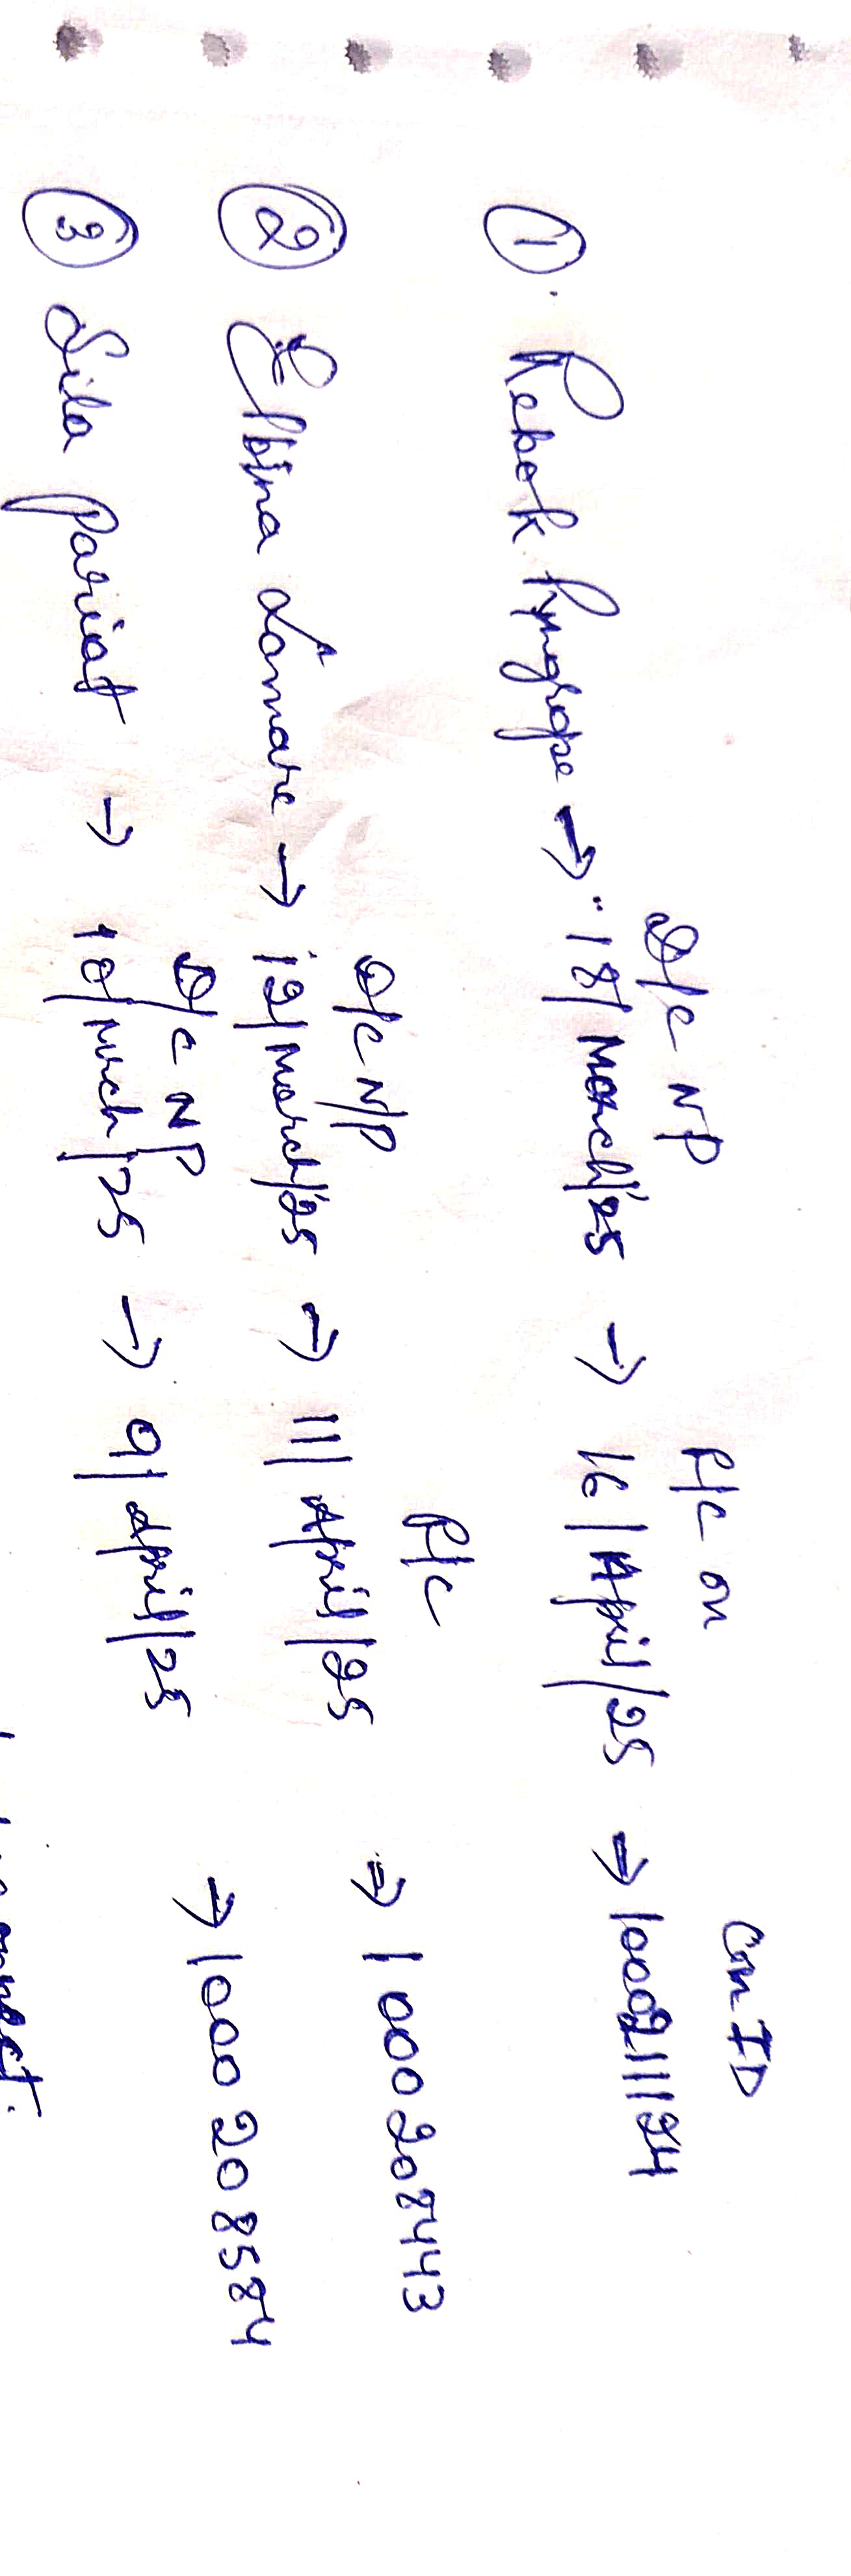 D/C NP P/C on Con ID
① Rebok Pyngrope → 18/March/25 → 16/April/25 → 1000211124
D/C N/P P/C
② Elbina Lamare → 12/March/25 → 11/April/25 → 1000208443
D/C NP
③ Sila Pariat → 10/March/25 → 9/April/25 → 1000208584